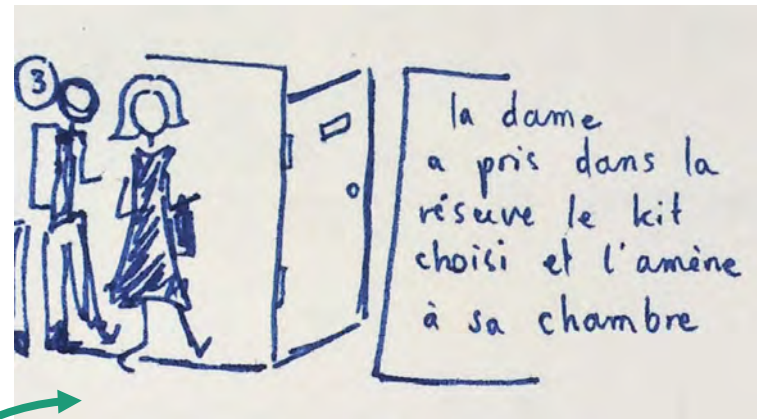 3
la dame
a pris dans la
réserve le kit
choisi et l'amène
à sa chambre